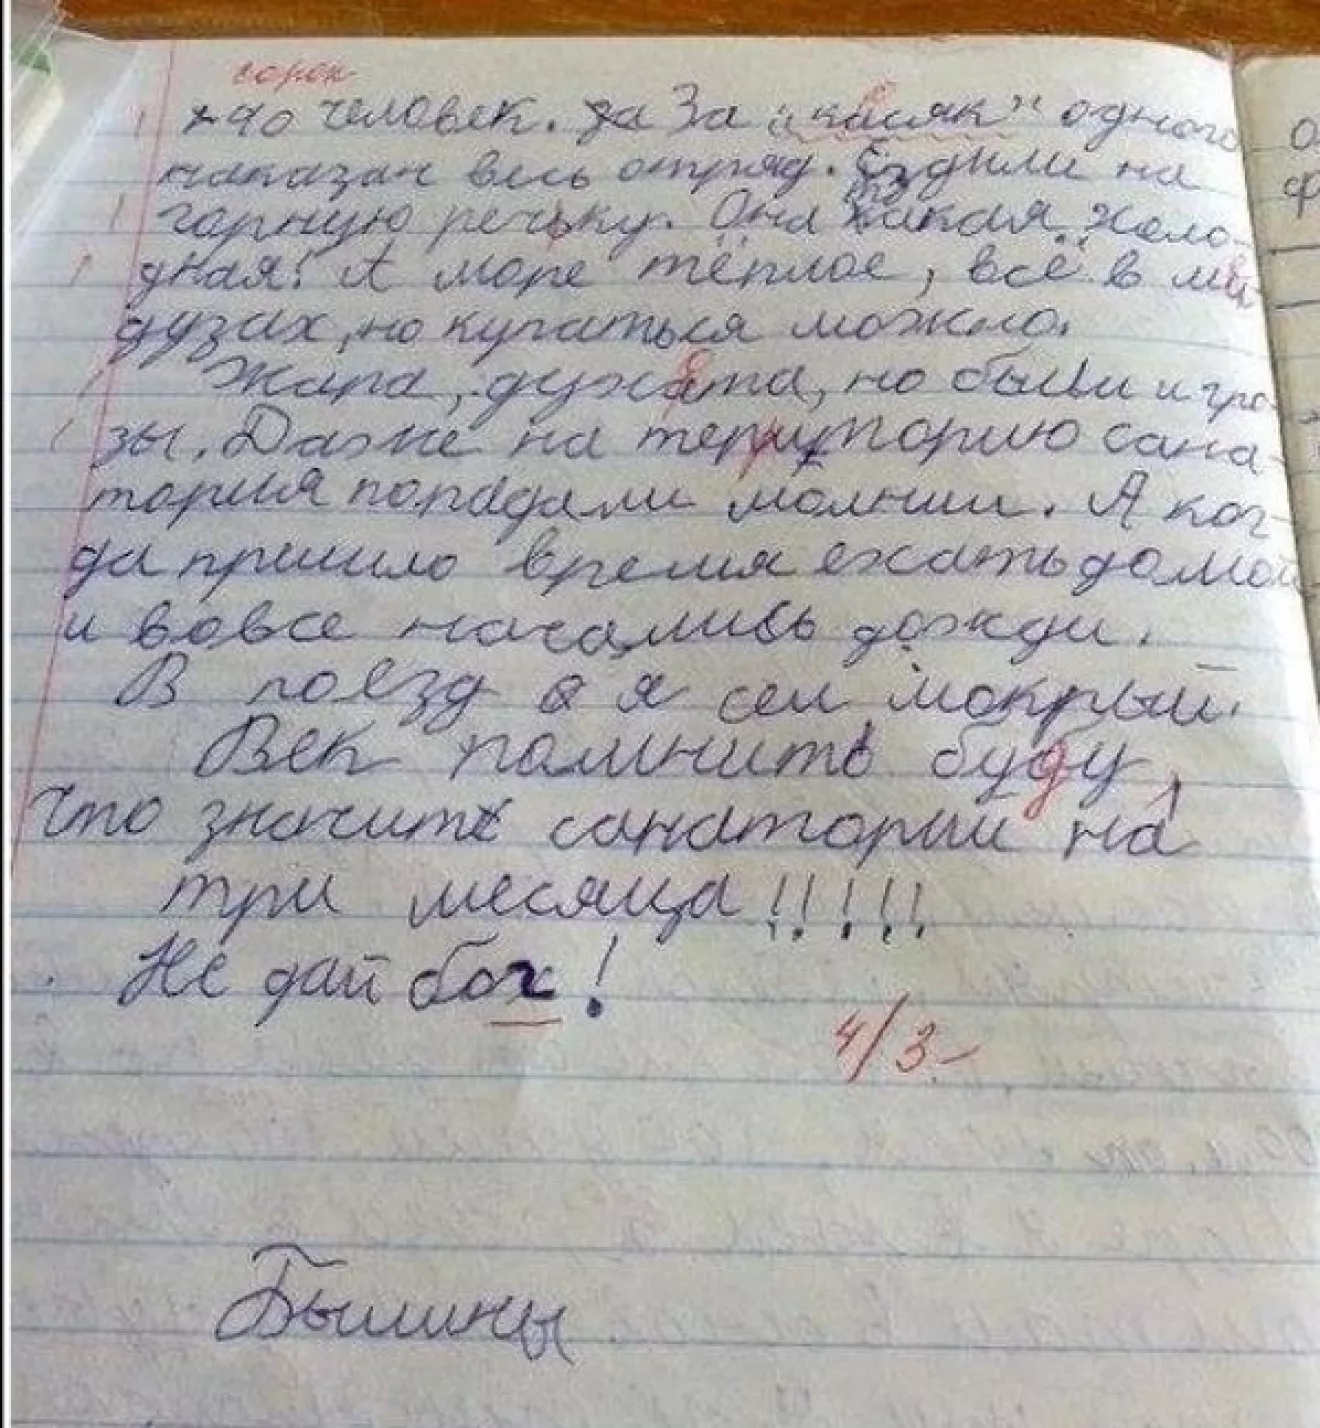 сорок
40 человек. За "касяк" одного
наказан весь отряд. Ездили на
горную речьку. Она такая холо-
дная! А море тёплое, всё в ми-
дузах, но купаться можно.
Жара, духата, но были и гро-
зы. Даже на територию сана-
тория попадали молнии. А ког-
да пришло время ехать домой
и вовсе начались дожди.
В поезд я сел мокрый.
Век помнить буду,
что значит санаторий на
три месяца!!!!!
Не дай бох!
4/3-
Былины